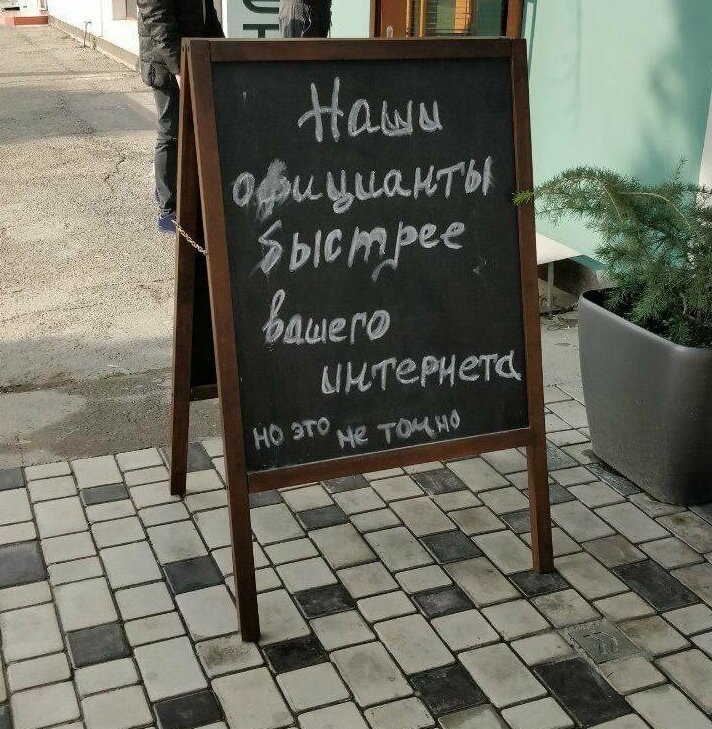 Наши
официанты
быстрее
вашего
интернета
но это не точно